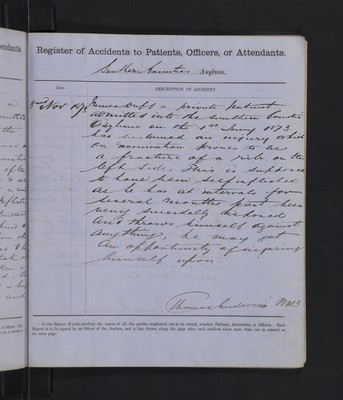 Register of Accidents to Patients, Officers, or Attendants.
Southern Counties Asylum.
Date.
DESCRIPTION OF ACCIDENT
3rd Nov 1873
James Duff a private Patient
admitted into the Southern Counties
Asylum on the 1st Jany 1873
has sustained an injury which
on examination proves to be
a fracture of a rib on the
left side. This is supposed
to have been self inflicted
as he has at intervals for
several months past been
very suicidally disposed
and throws himself against
anything he may get
an opportunity of injuring
himself upon.
Thomas Anderson MB
In the Report of each accident the names of all the parties implicated are to be stated, whether Patients, Attendants, or Officers. Each
Report is to be signed by an Officer of the Asylum, and a line drawn along the page after each accident when more than one is entered on
the same page.